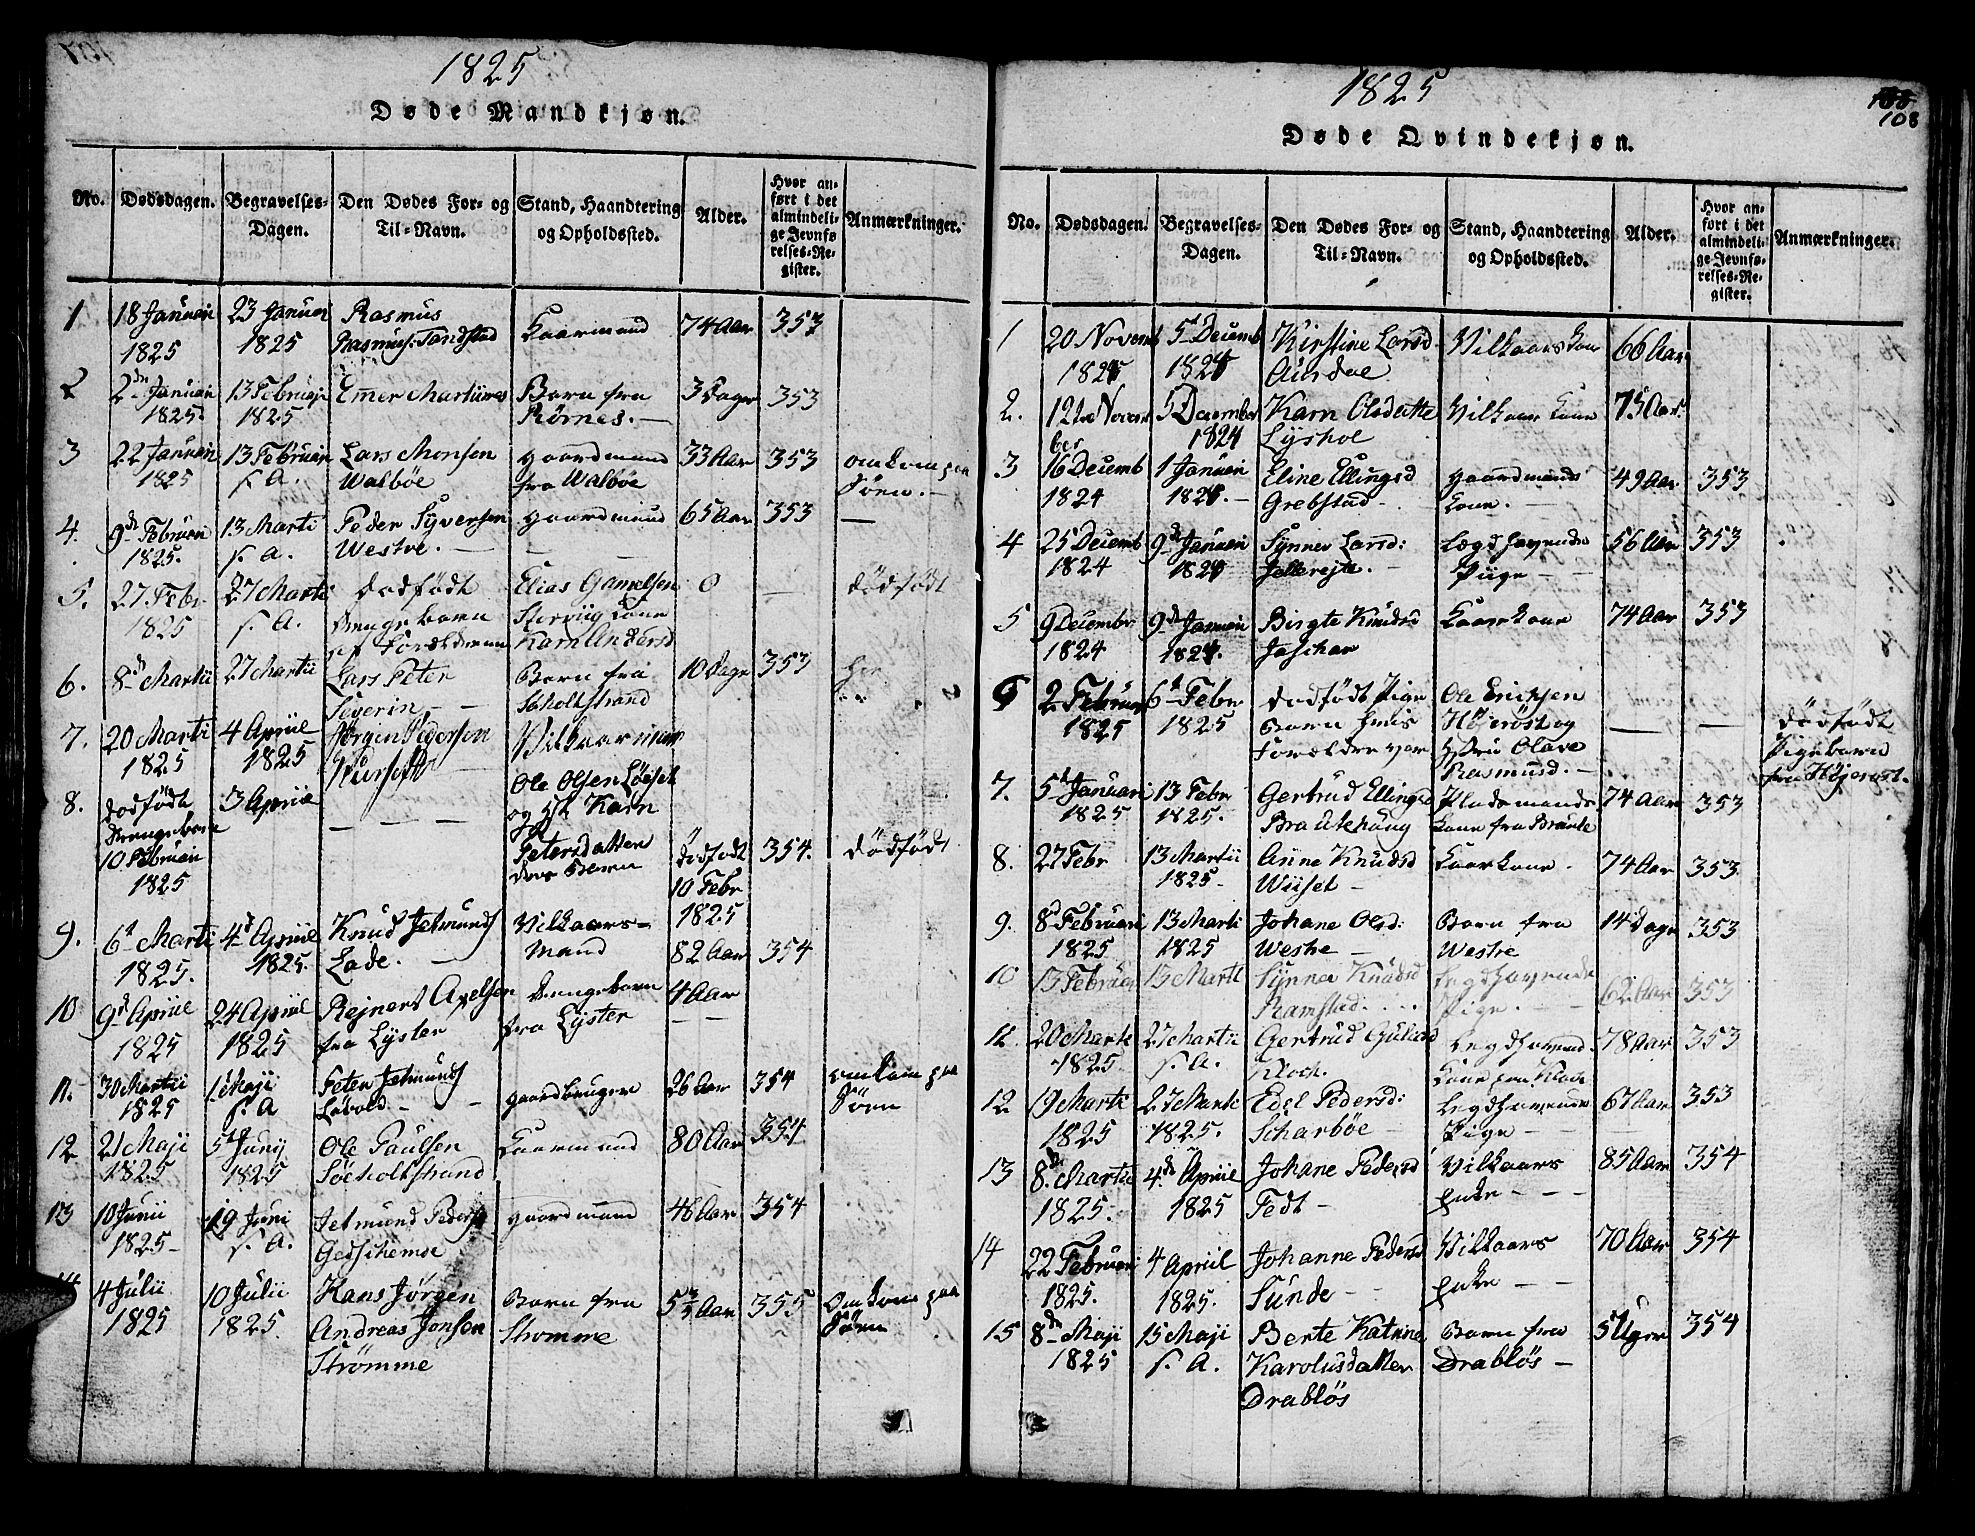 1825
Døde Mandkjøn.
No.
Dødsdagen.
Begravelses-
Dagen.
Den Dødes For- og
Til-Navn.
Stand, Haandtering
og Opholdssted.
Alder.
Hvor an-
ført i det
almindeli-
ge Jevnfø-
relses-Re-
gister.
Anmærkninger.
1
18 Januari
1825
23 Januari
1825
Rasmus
Rasmus: Tandstad
Kaarmand
74 Aar
353
2
2de Januari
1825.
13 Februari
1825
Emer Martinus
Barn fra
Rørnes.
3 Dager
353
3
22 Januari
1825
13 Februari
s. A.
Lars Monsen
Walbøe
gaardmand
fra Walbøe
33 Aar
353
omkom paa
Søen.
4.
9de Februari
1825.
13 Marti
s. a.
Peder Syversen
Westre.
gaardmand
65 Aar
353
5.
27. Febr
1825
27 Marti
s. A.
dødfødt
Drengebarn
af Forældrene
Elias Gamelsen
Karn Andersd
0
dødfødt
6.
8de Martii
27 Martii
Lars Peter
Severin
Barn fra
Scholtstrand
10 Dage
353
7.
20 Marti
1825
4 Apriil
1825
Jørgen Pedersen
8.
dødfødt
Drengebarn
10 Februari
1825
3 Apriil
Ole Olsen Løeset
og Hst Karn
Petersdatter
deres Barn
Dødfødt
10 Febr
1825
354.
dødfødt
9.
6t Marti
1825.
4de Apriil
1825.
Knud Jetmunds
Lade.
Vilkaars-
Mand
82 Aar
354
10
9de Apriil
1825
24 Apriil
1825
Rejnert Axelsen
fra Lyster
Drengebarn
fra Lyster
4 Aar
11.
30 Martii
1825
1 Maji
s. A
Peter Jetmunds
Løvold
gaardbruger
26 Aar
354
omkom paa
Søen
12
21 Maji
1825
5t Junij
1825
Ole Paulsen
Søeholtstrand
Kaarmand
80 Aar
354
13
10 Junii
1825
19 Juni
s. A.
Jetmund Peders
Gedschemse
gaardmand
48 Aar
354
14
4 Julii
1825
10 Julii
1825.
Hans Jørgen
Andreas Jonsen
Strømme
Barn fra
Stromme
5 1/2 Aar
355
Omkom paa
Søen
1825
108
Døde Qvindekjøn.
No.
Dødsdagen.
Begravelses-
Dagen.
Den Dødes For- og
Til-Navn.
Stand, Haandtering
og Opholdssted.
Alder.
Hvor an-
ført i det
almindeli-
ge Jevnfø-
relses-Re-
gister.
Anmærkninger.
1
20 Novemb
1824
5t Decemb
1824
Kirstine Larsd
Aursdae
Vilkaars Kone
66 Aar
2.
12te Novem
ber
5 December
1824
Karn Olsdatte
Lyshol
Vilkaar Kone
75 Aar
3
16 Decemb
1824
1 Januari
1824.
Eline Ellingsd
Grebstad
gaardmands
Kone.
49 Aar
353
4
25 Decemb
1824
9de Januari
1824
Synnev Larsd:
Jellerejte.
Lægdhavende
Piige
56 Aar
353
5
9 Decembr
1824
9de Januari
1824.
Birgte Knudsd
Jaschar
Kaarkone
74 Aar
353
6
2 Februar
1825
6t Febr
1825
dødfødt Pige
Barn hvis
Forældre var
Ole Erichsen
Højerøst og
Hstru Olave
Rasmusd.
dødfødt
Pigebarn
fra Højerøst.
7.
5t Januari
1825
13 Febr
1825.
Gertrud Ellingsd
Brautehaug
Pladsmands
Kone fra Braute
74 Aar
353
8.
27 Febr
13 Martii
1825
Anne Knudsd
Wiiset
Kaarkone.
74 Aar
353
9.
8 Februari
1825
13 Marti
1825
Johane Olsd:
Westre
Barn fra
Westre
14 Dage
353
10
13 Februari
13 Marti
Synnev Knudsd
Ramstad.
Legdhavende
Pige.
62 Aar
353
11.
20 Marti
1825.
27 Martii
s. A.
Gertrud Guliasd
Kloch.
Legdhavend.
Kone fra Kloch
78 Aar
353
12
19 Marti
1825
27 Marti
1825.
Edel Pedersd:
Scharbøe
Legdhavende
Pige
67 Aar
353
13
8de Marti
1825.
4de Apriil
1825
Johane Pedersd
Fedt
Vilkaars
Enke
85 Aar
354
14
22 Februari
1825.
4 Apriil
1825.
Johanne Pedersd
Sunde
Vilkaars
Enke
70 Aar
354
15
8de Maji
1825
15 Maji
s. A.
Berte Katrine
Karolusdatter
Drabløs
Barn fra
Drabløs
5 Uger
354